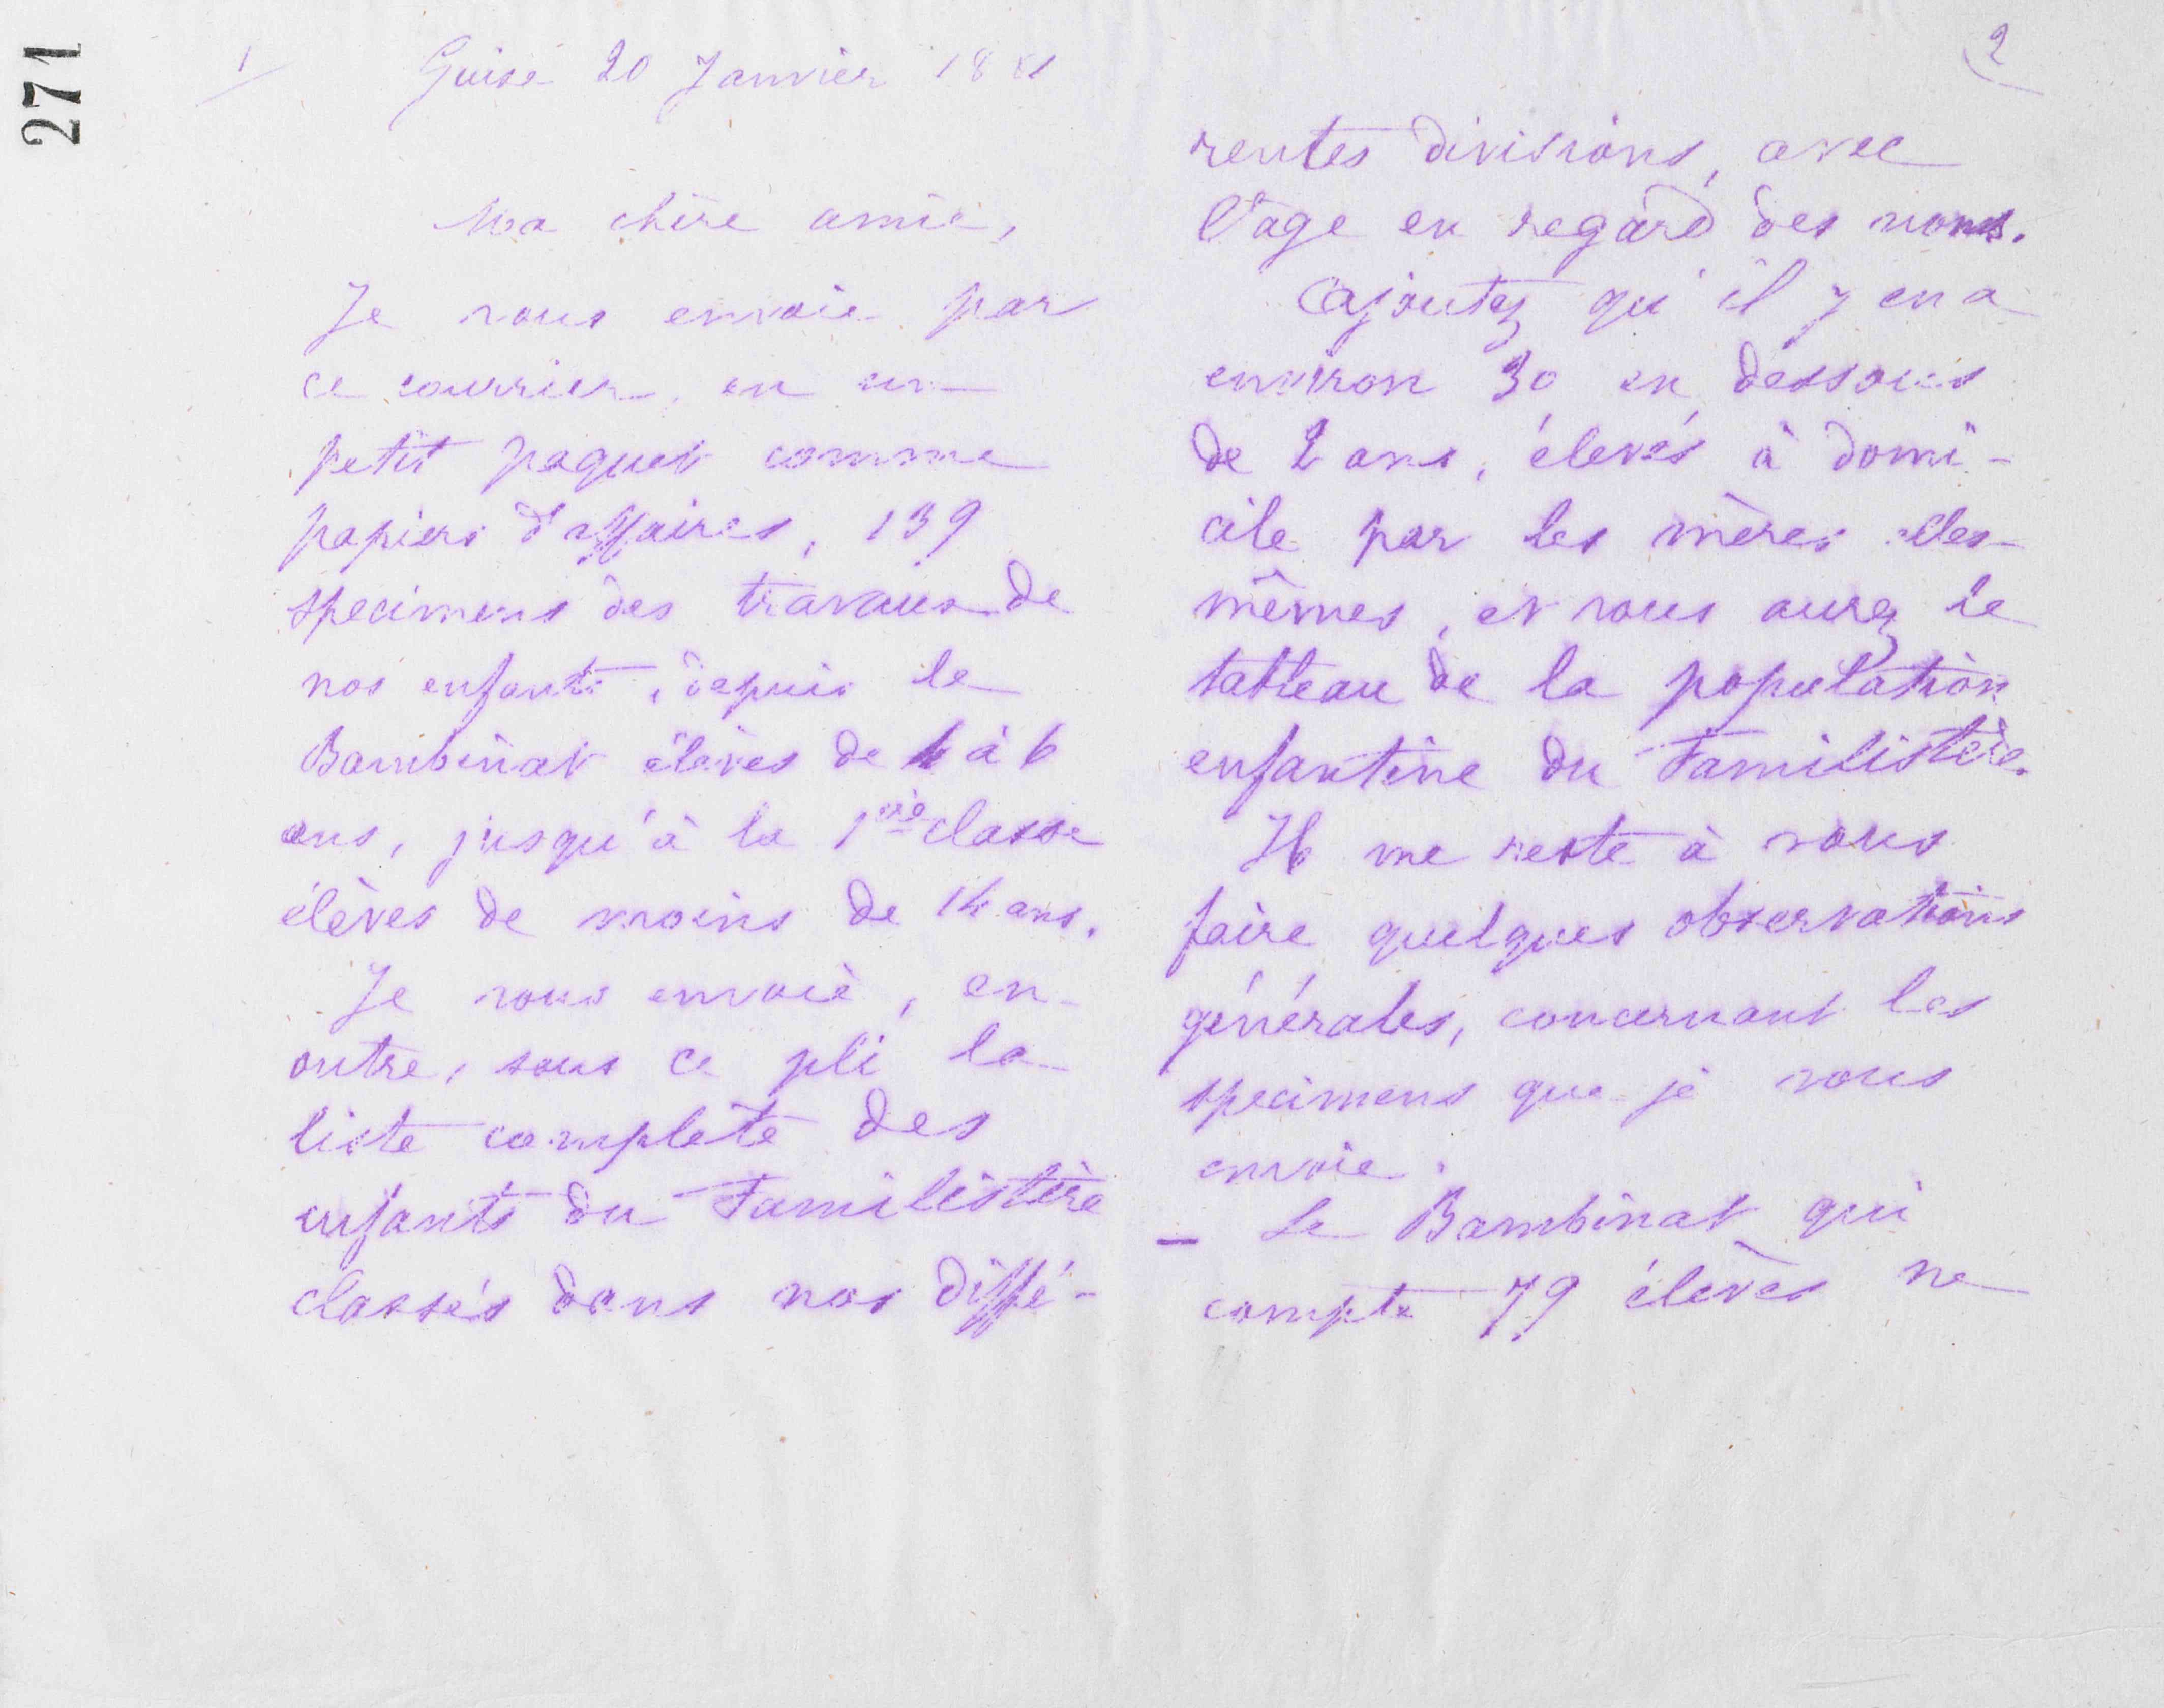 271
1/
Guise 20 Janvier 1881
Ma chère amie,
Je vous envoie par
ce courrier, en un
petit paquet comme
papiers d'affaires, 139
specimens des travaux de
nos enfants, depuis le
Bambinat élèves de 4 à 6
ans, jusqu'à la 1ère classe
élèves de moins de 14 ans.
Je vous envoie, en
outre, sous ce pli la
liste complète des
enfants du Familistère
classés dans nos diffé-
2
rentes divisions, avec
l'âge en regard des noms.
Ajoutez qu'il y en a
environ 30 en dessous
de 2 ans, élevés à domi-
cile par les mères elles-
mêmes, et vous aurez le
tableau de la population
enfantine du Familistère.
Il me reste à vous
faire quelques observations
générales, concernant les
specimens que je vous
envoie.
– Le Bambinat qui
compte 79 élèves ne